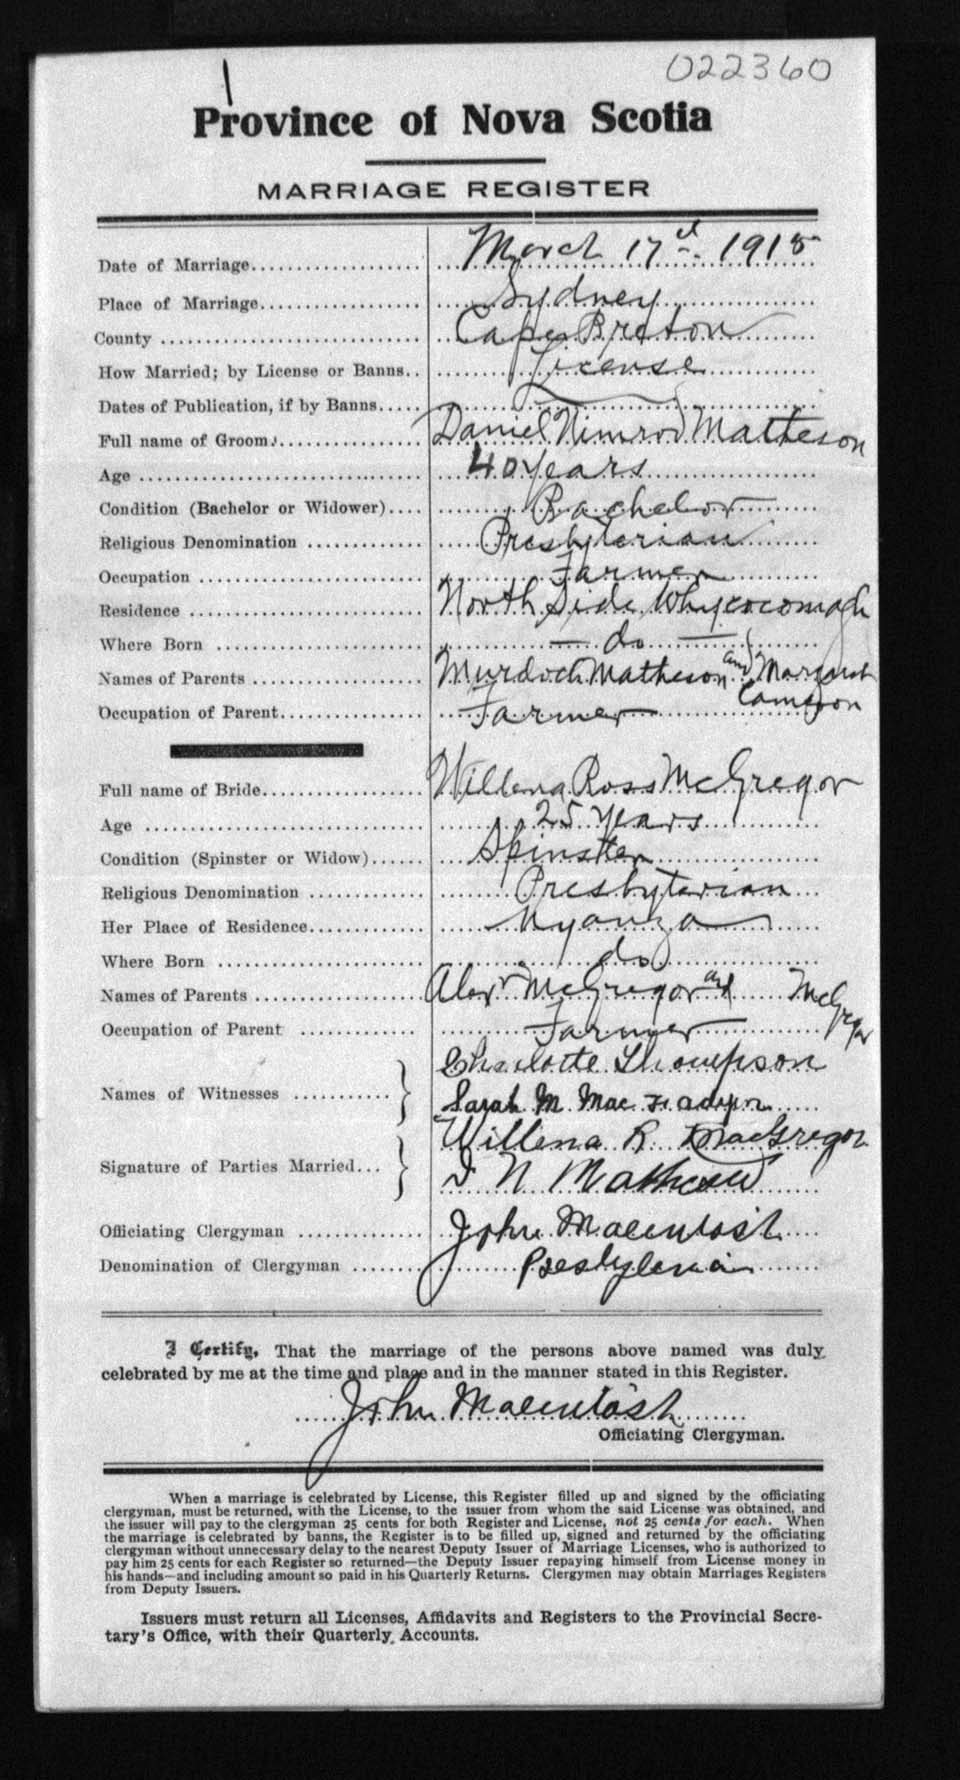 022360
Province of Nova Scotia
MARRIAGE REGISTER
Date of Marriage March 17d 1915
Place of Marriage Sydney
County Cape Breton
How Married; by License or Banns License
Dates of Publication, if by Banns
Full name of Groom Daniel Nimrod Matheson
Age 40 Years
Condition (Bachelor or Widower) Bachelor
Religious Denomination Presbyterian
Occupation Farmer
Residence North Side Whycocomagh
Where Born do
Names of Parents Murdoch Matheson and Margaret Cameron
Occupation of Parent Farmer
Full name of Bride Willena Ross McGregor
Age 25 years
Condition (Spinster or Widow) Spinster
Religious Denomination Presbyterian
Her Place of Residence Nyanza
Where Born do
Names of Parents Alexr McGregor and McGregor
Occupation of Parent Farmer
Names of Witnesses Charlotte Thompson
Sarah M. Mac
Signature of Parties Married Willena R. MacGregor
D N Matheson
Officiating Clergyman John Macintosh
Denomination of Clergyman Presbyterian
I Certify, That the marriage of the persons above named was duly
celebrated by me at the time and place and in the manner stated in this Register.
John Macintosh
Officiating Clergyman.
When a marriage is celebrated by License, this Register filled up and signed by the officiating
clergyman, must be returned, with the License, to the issuer from whom the said License was obtained, and
the issuer will pay to the clergyman 25 cents for both Register and License, not 25 cents for each. When
the marriage is celebrated by banns, the Register is to be filled up, signed and returned by the officiating
clergyman without unnecessary delay to the nearest Deputy Issuer of Marriage Licenses, who is authorized to
pay him 25 cents for each Register so returned—the Deputy Issuer repaying himself from License money in
his hands—and including amount so paid in his Quarterly Returns. Clergymen may obtain Marriages Registers
from Deputy Issuers.
Issuers must return all Licenses, Affidavits and Registers to the Provincial Secre-
tary's Office, with their Quarterly Accounts.